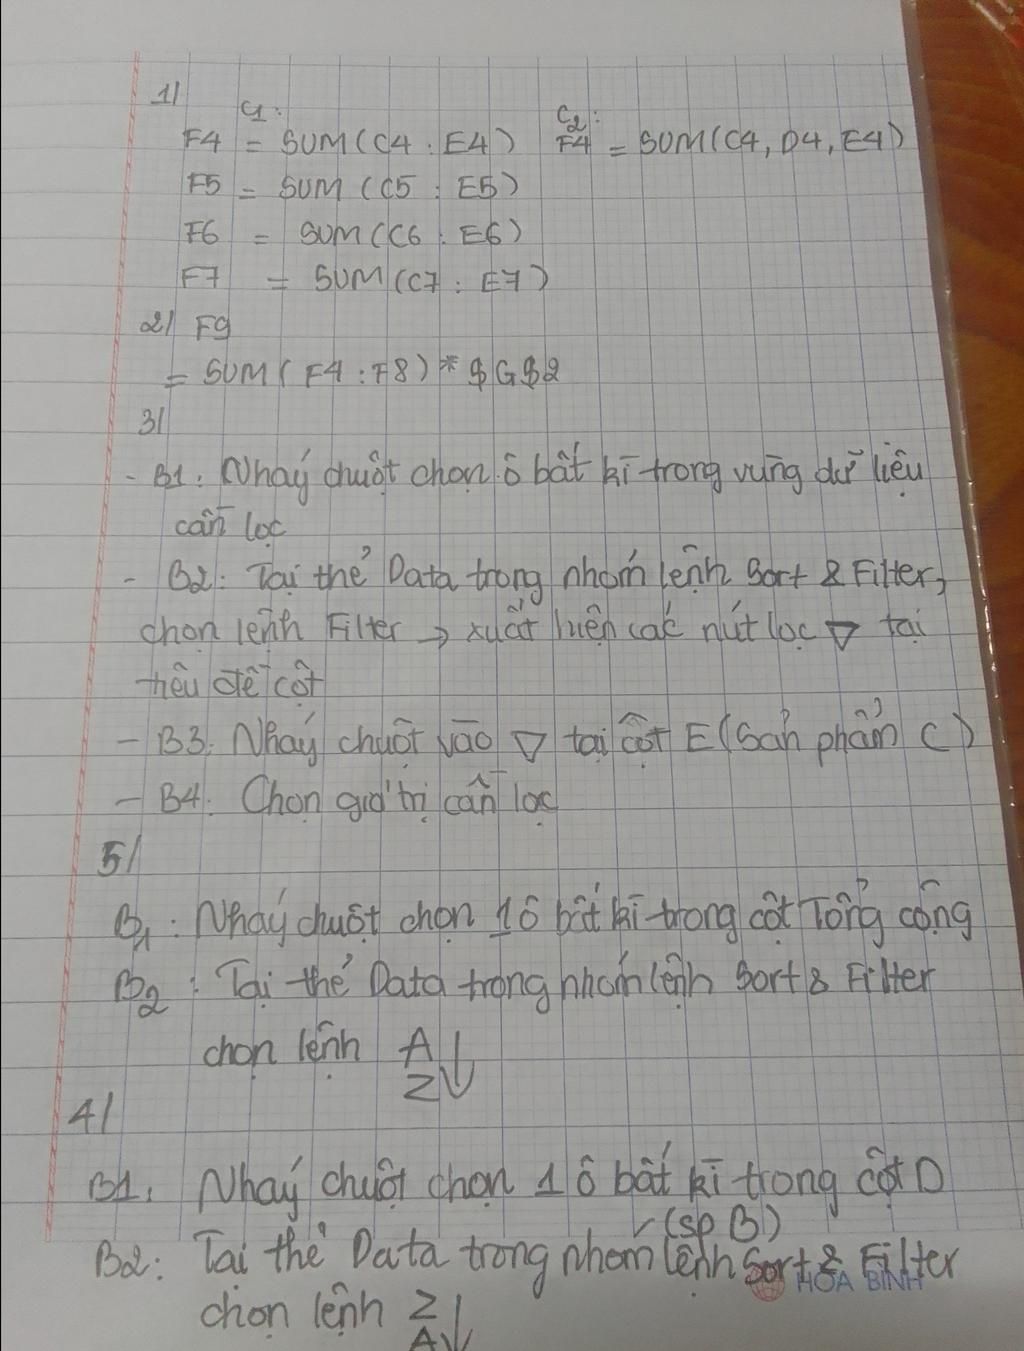 1/
C1:
C2:
F4 = SUM(C4:E4) F4 = SUM(C4, D4, E4)
F5 = SUM(C5:E5)
F6 = SUM(C6:E6)
F7 = SUM(C7:E7)
2/ F9
= SUM(F4:F8)*$G$2
3/
- B1: Nháy chuột chọn ô bất kì trong vùng dữ liệu
cần lọc
- B2: Tại thẻ Data trong nhóm lệnh Sort & Filter,
chọn lệnh Filter → xuất hiện các nút lọc ▽ tại
tiêu đề cột
- B3: Nháy chuột vào ▽ tại cột E (Sản phẩm C)
- B4: Chọn giá trị cần lọc
5/
B1: Nháy chuột chọn 1 ô bất kì trong cột Tổng cộng
B2: Tại thẻ Data trong nhóm lệnh Sort & Filter
chọn lệnh A
Z↓
4/
B1: Nháy chuột chọn 1 ô bất kì trong cột D
(sp B)
B2: Tại thẻ Data trong nhóm lệnh Sort & Filter
HÒA BÌNH
chọn lệnh Z
A↓